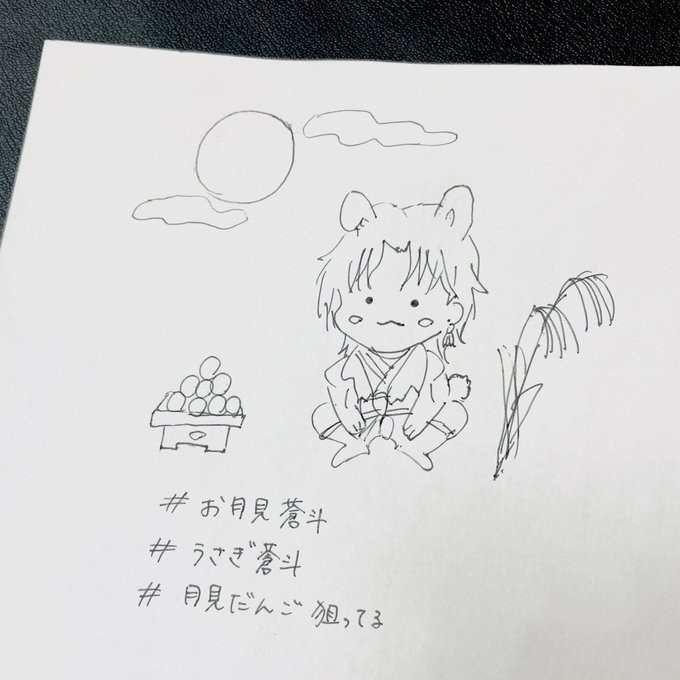 # お月見蒼斗
# うさぎ蒼斗
# 月見だんご狙ってる